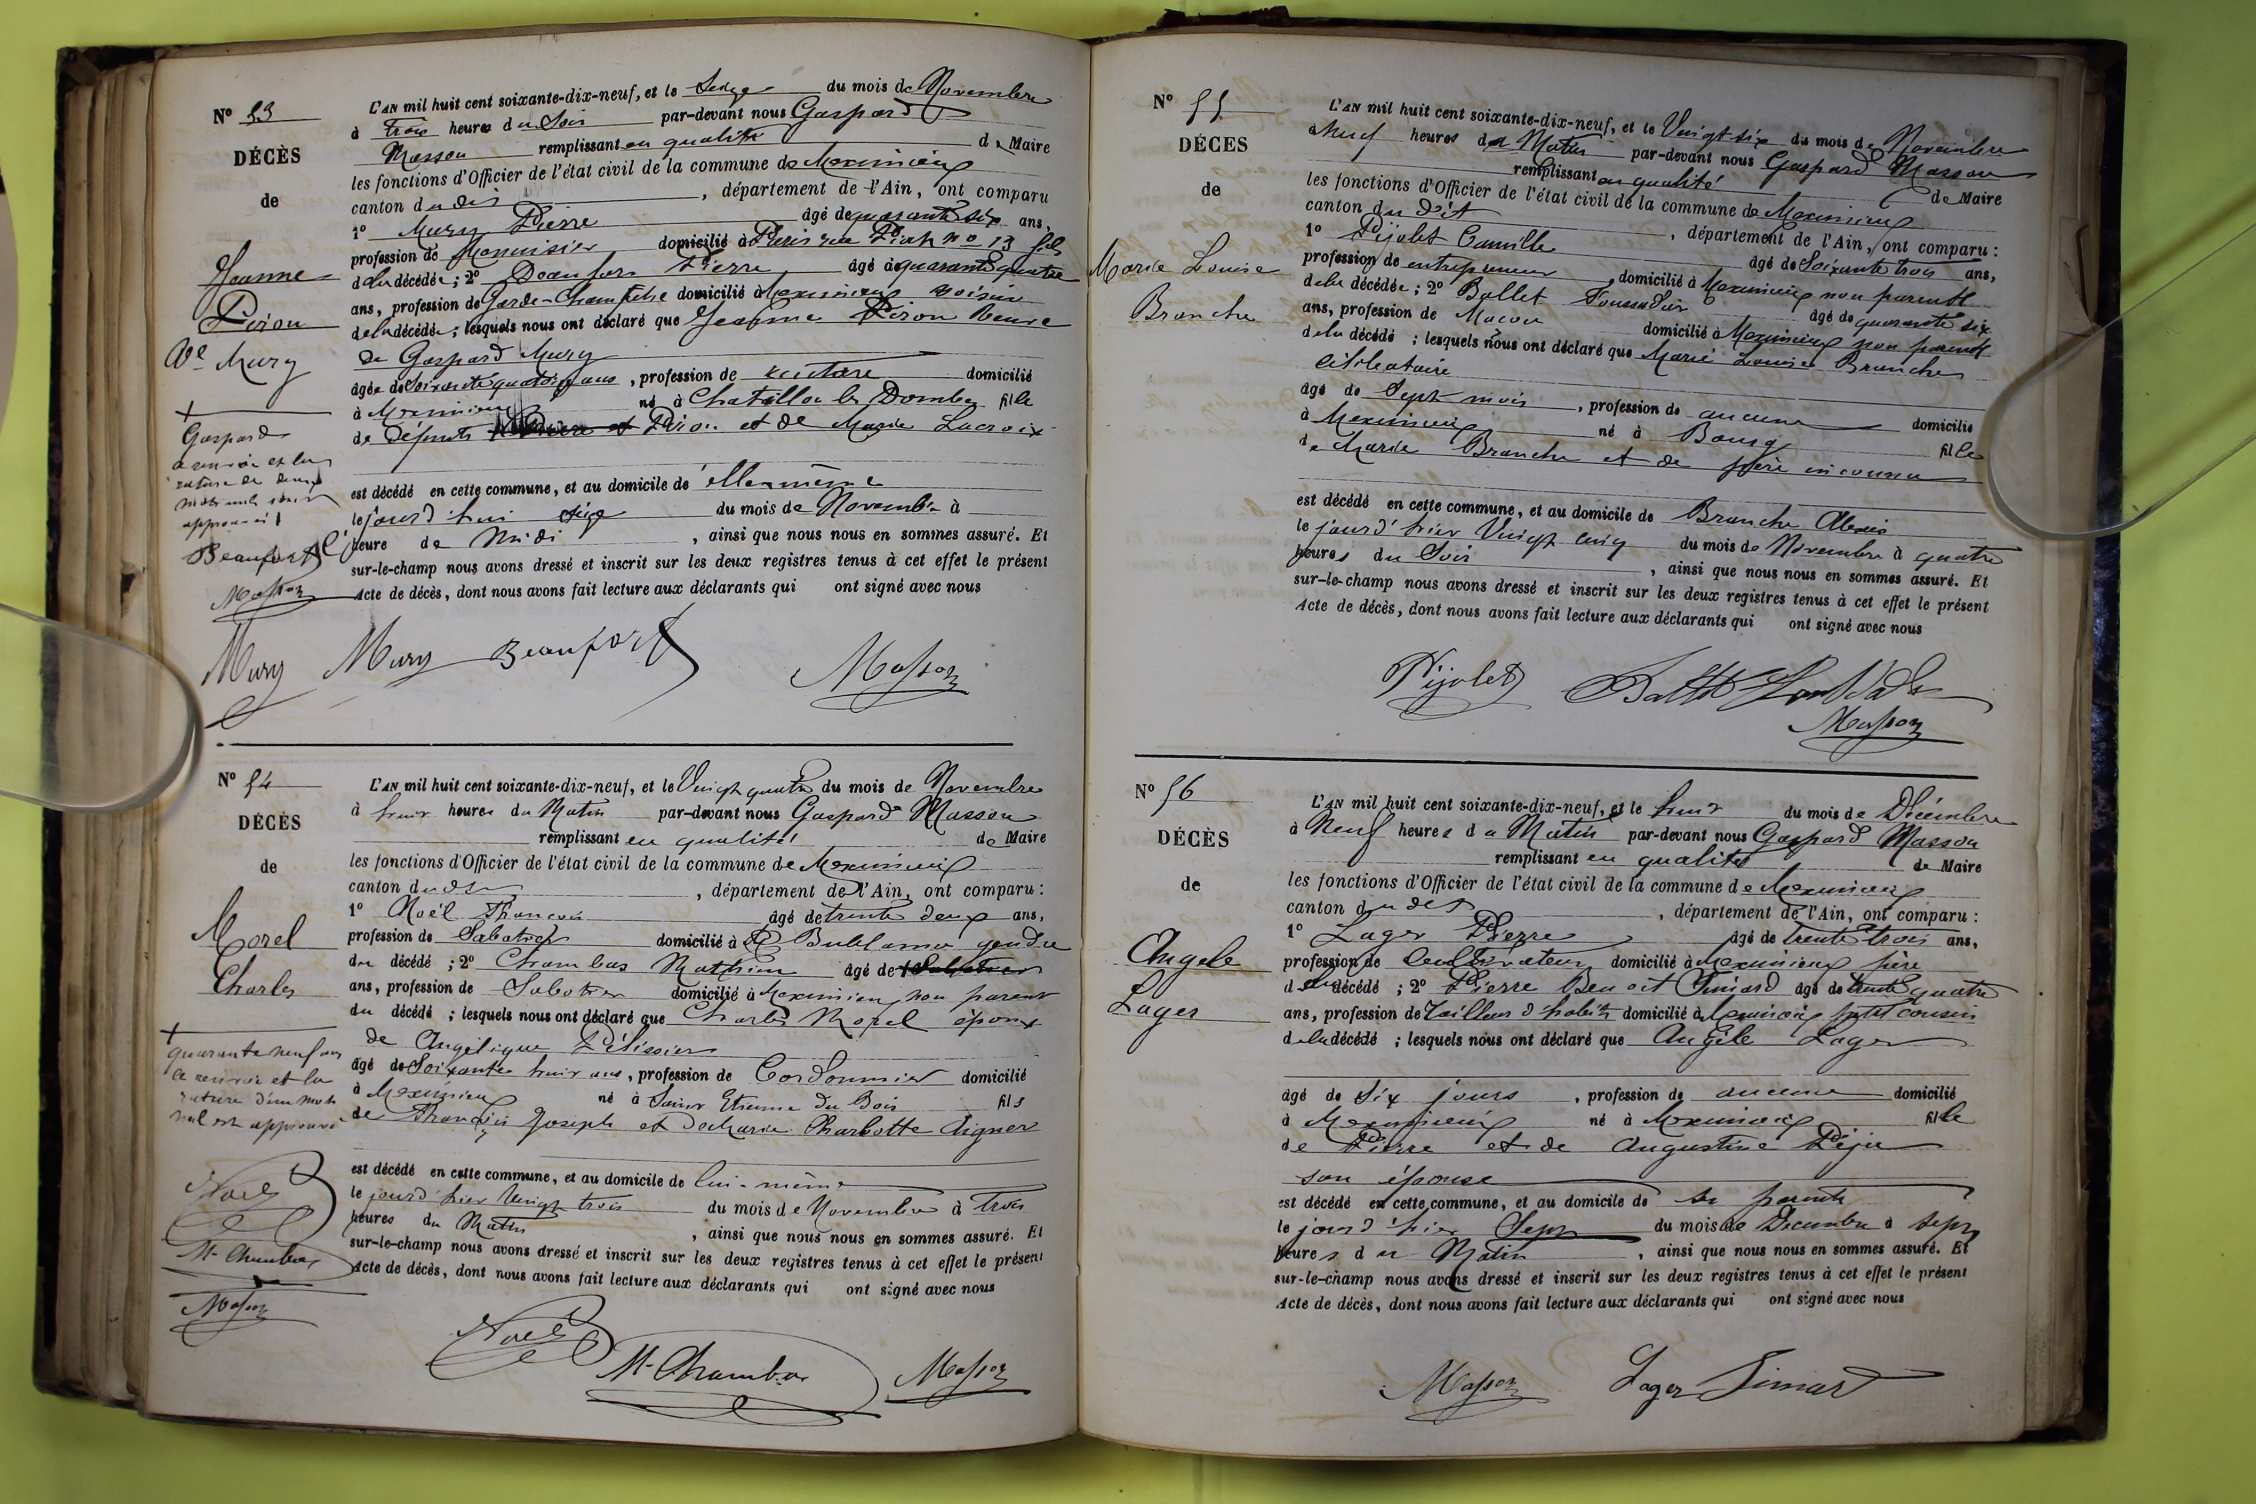 N° 53
DÉCÈS
de
Jeanne
Piron
Ve Mury
L'AN mil huit cent soixante-dix-neuf, et le Seize du mois de Novembre
à trois heures du Soir par-devant nous Gaspard
Masson remplissant en qualité de Maire
les fonctions d'Officier de l'état civil de la commune de Meximieux
canton du dit, département de l'Ain, ont comparu
1° Mury Pierre âgé de quarante six ans,
profession de Menuisier domicilié à Paris rue n° 13 fils
de la décédée; 2° Beaufort Pierre âgé de quarante quatre
ans, profession de Garde-Champêtre domicilié à Meximieux voisin
de la décédée; lesquels nous ont déclaré que Jeanne Piron Veuve
de Gaspard Mury
âgée de Soixante quatorze ans, profession de domicilié
à Meximieux né à Chatillon les Dombes fille
de défunts Piron et de Marie Lacroix
est décédé en cette commune, et au domicile de elle même
le jourd'hui seize du mois de Novembre à
heure de Midi, ainsi que nous nous en sommes assuré. Et
sur-le-champ nous avons dressé et inscrit sur les deux registres tenus à cet effet le présent
Acte de décès, dont nous avons fait lecture aux déclarants qui ont signé avec nous
Gaspard
le renvoi et la
rature de deux
mots nuls sont
approuvés
Beaufort
Masson
Mury Mury Beaufort Masson
N° 54
DÉCÈS
de
Morel
Charles
L'AN mil huit cent soixante-dix-neuf, et le Vingt quatre du mois de Novembre
à huit heures du Matin par-devant nous Gaspard Masson
remplissant en qualité de Maire
les fonctions d'Officier de l'état civil de la commune de Meximieux
canton du dit, département de l'Ain, ont comparu:
1° Noël François âgé de trente deux ans,
profession de Sabotier domicilié à gendre
du décédé; 2° Chambas Mathieu âgé de
ans, profession de Sabotier domicilié à Meximieux non parent
du décédé; lesquels nous ont déclaré que Charles Morel époux
de Angélique Pélissier
âgé de Soixante huit ans, profession de Cordonnier domicilié
à Meximieux né à Saint Etienne du Bois fils
de François Joseph et de Marie Charlotte
est décédé en cette commune, et au domicile de lui-même
le jourd'hier Vingt trois du mois de Novembre à trois
heures du Matin, ainsi que nous nous en sommes assuré. Et
sur-le-champ nous avons dressé et inscrit sur les deux registres tenus à cet effet le présent
Acte de décès, dont nous avons fait lecture aux déclarants qui ont signé avec nous
quarante neuf ans
le renvoi et la
rature d'un mot
nul est approuvé
Noël
M. Chambas
Masson
Noël M. Chambas Masson
N° 55
DÉCÈS
de
Marie Louise
Branche
L'AN mil huit cent soixante-dix-neuf, et le Vingt-six du mois de Novembre
à Neuf heures du Matin par-devant nous Gaspard Masson
remplissant en qualité de Maire
les fonctions d'Officier de l'état civil de la commune de Meximieux
canton du dit, département de l'Ain, ont comparu:
1° Pijolet Camille âgé de Soixante trois ans,
profession de entrepreneur, domicilié à Meximieux non parent
de la décédée; 2° Ballet âgé de quarante six
ans, profession de Maçon domicilié à Meximieux non parent
de la décédé; lesquels nous ont déclaré que Marie Louise Branche
célibataire
âgé de Sept mois, profession de aucune domicilié
à Meximieux né à Bourg fille
de Marie Branche et de père inconnu
est décédé en cette commune, et au domicile de Branche Alexis
le jourd'hier Vingt cinq du mois de Novembre à quatre
heures du Soir, ainsi que nous nous en sommes assuré. Et
sur-le-champ nous avons dressé et inscrit sur les deux registres tenus à cet effet le présent
Acte de décès, dont nous avons fait lecture aux déclarants qui ont signé avec nous
Pijolet
Masson
N° 56
DÉCÈS
de
Angele
Lager
L'AN mil huit cent soixante-dix-neuf, et le huit du mois de Décembre
à Neuf heures du Matin par-devant nous Gaspard Masson
remplissant en qualité de Maire
les fonctions d'Officier de l'état civil de la commune de Meximieux
canton du dit, département de l'Ain, ont comparu:
1° Lager Pierre âgé de trente trois ans,
profession de Cultivateur domicilié à Meximieux père
de la décédé; 2° Pierre Benoit Simard âgé de trente quatre
ans, profession de Tailleur d'habits domicilié à Meximieux petit cousin
de la décédé; lesquels nous ont déclaré que Angèle Lager
âgé de Six jours, profession de aucune domicilié
à Meximieux né à Meximieux fille
de Pierre et de Augustine
son épouse
est décédé en cette commune, et au domicile de ses parents
le jourd'hier Sept du mois de Decembre à sept
heures du Matin, ainsi que nous nous en sommes assuré. Et
sur-le-champ nous avons dressé et inscrit sur les deux registres tenus à cet effet le présent
Acte de décès, dont nous avons fait lecture aux déclarants qui ont signé avec nous
Masson Lager Simard